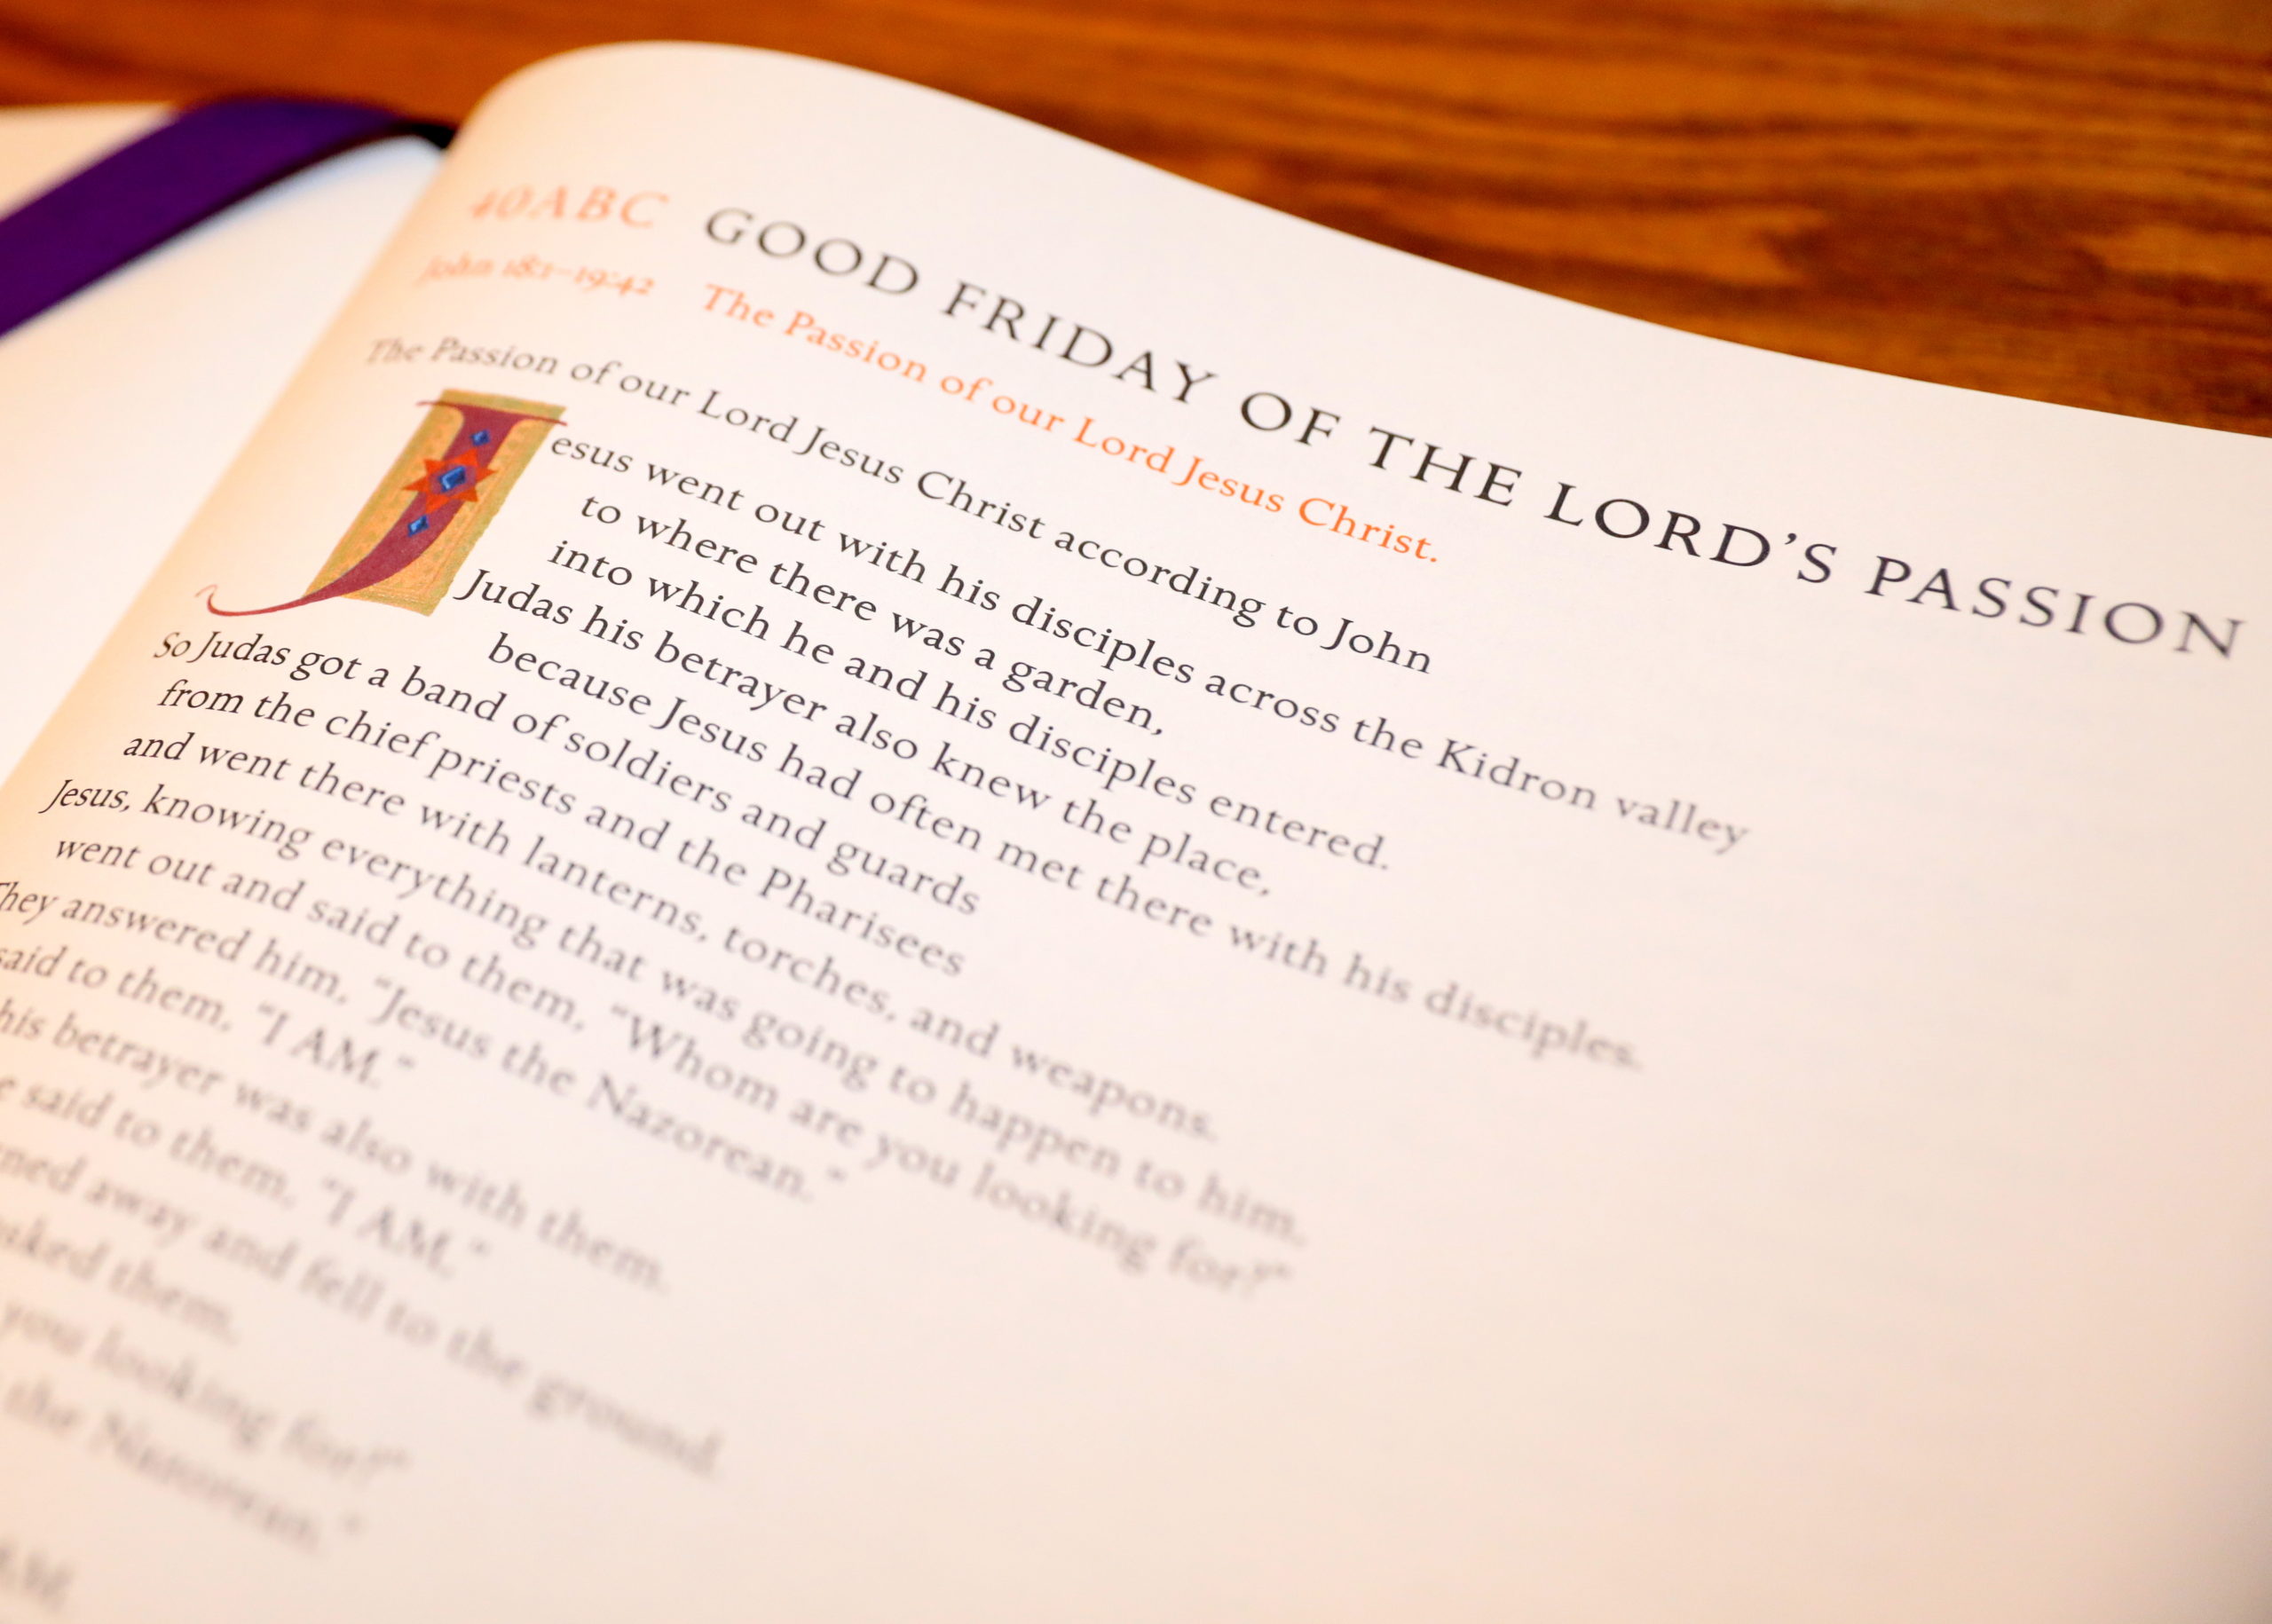 40ABC GOOD FRIDAY OF THE LORD'S PASSION
John 18:1–19:42 The Passion of our Lord Jesus Christ.
The Passion of our Lord Jesus Christ according to John
Jesus went out with his disciples across the Kidron valley
to where there was a garden,
into which he and his disciples entered.
Judas his betrayer also knew the place,
because Jesus had often met there with his disciples.
So Judas got a band of soldiers and guards
from the chief priests and the Pharisees
and went there with lanterns, torches, and weapons.
Jesus, knowing everything that was going to happen to him,
went out and said to them, “Whom are you looking for?”
They answered him, “Jesus the Nazorean.”
said to them, “I AM.”
his betrayer was also with them.
said to them, “I AM,”
away and fell to the ground.
asked them,
you looking for?”
the Nazorean.”
AM